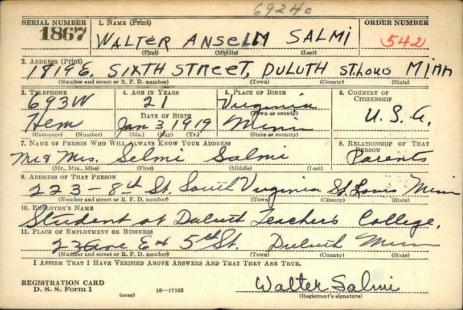 69240
SERIAL NUMBER 1. NAME (Print) ORDER NUMBER
1867 WALTER ANSELM SALMI 542
(First) (Middle) (Last)
2. ADDRESS (Print)
1819 E. SIXTH STREET, DULUTH ST. LOUIS MINN
(Number and street or R. F. D. number) (Town) (County) (State)
3. TELEPHONE 4. AGE IN YEARS 5. PLACE OF BIRTH 6. COUNTRY OF CITIZENSHIP
693W 21 Virginia
DATE OF BIRTH (Town or county)
Hem Jan 3, 1919 Minn U. S. A.
(Exchange) (Number) (Mo.) (Day) (Yr.) (State or country)
7. NAME OF PERSON WHO WILL ALWAYS KNOW YOUR ADDRESS 8. RELATIONSHIP OF THAT PERSON
Mr & Mrs. Selmi Salmi Parents
(Mr., Mrs., Miss) (First) (Middle) (Last)
9. ADDRESS OF THAT PERSON
223 - 8th St. South Virginia St. Louis Minn
(Number and street or R. F. D. number) (Town) (County) (State)
10. EMPLOYER'S NAME
Student at Duluth Teachers College,
11. PLACE OF EMPLOYMENT OR BUSINESS
23 Ave E & 5th St. Duluth Minn
(Number and street or R. F. D. number) (Town) (County) (State)
I AFFIRM THAT I HAVE VERIFIED ABOVE ANSWERS AND THAT THEY ARE TRUE.
REGISTRATION CARD
D. S. S. Form 1 (over) 16-17105
Walter Salmi
(Registrant's signature)